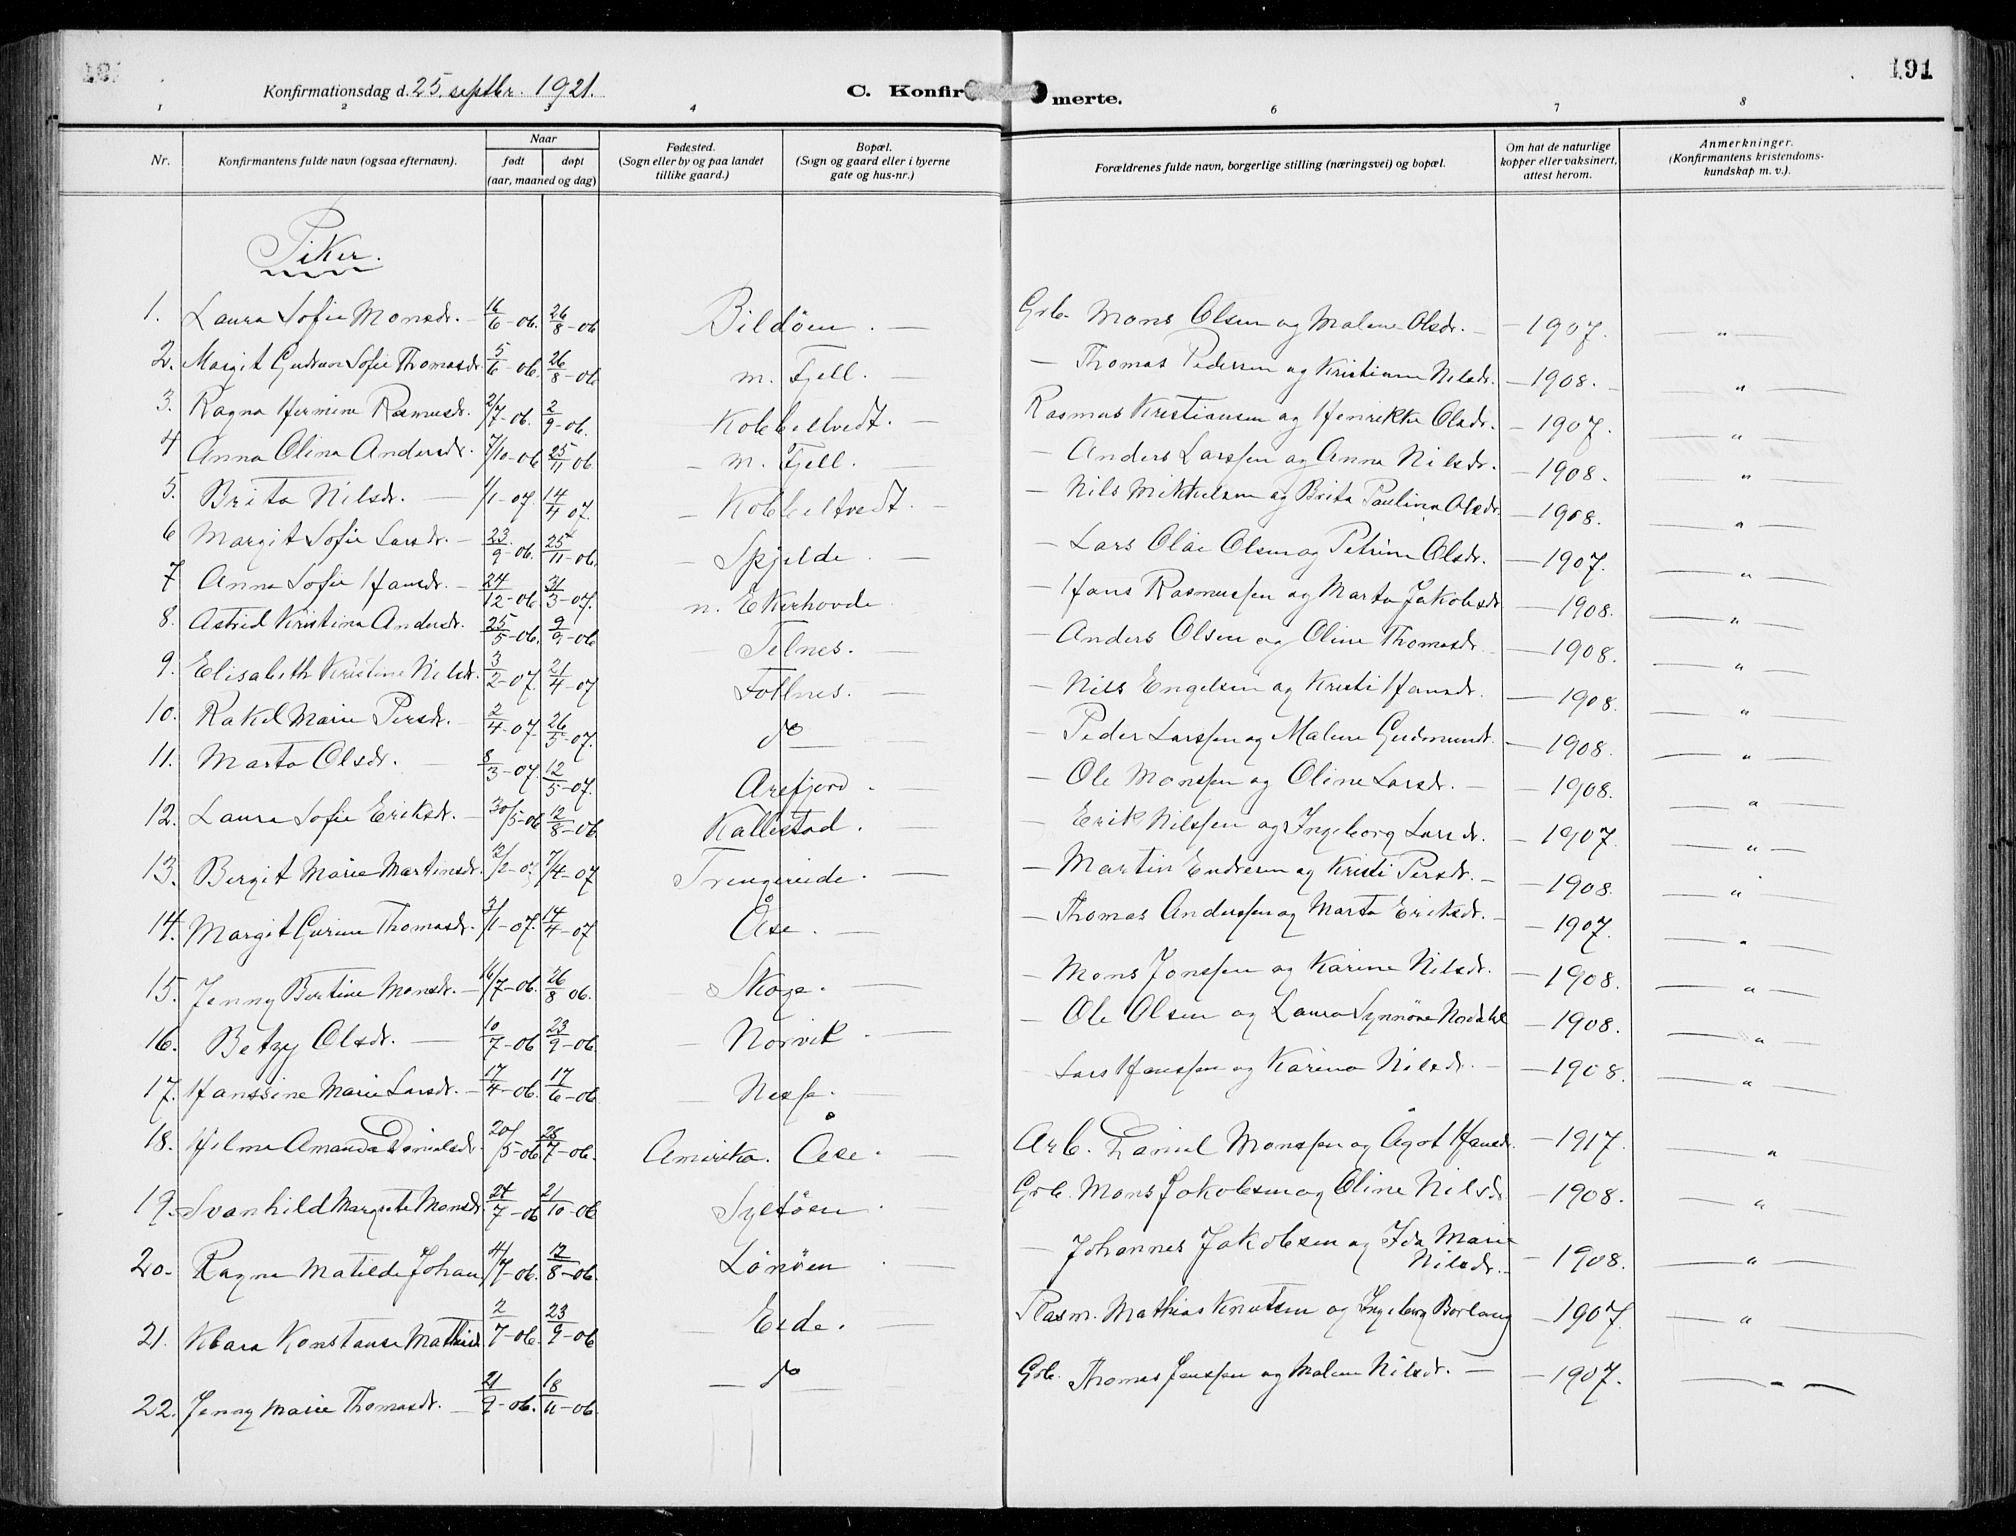 191
Konfirmationsdag d. 25. septbr. 1921.
C. Konfirmerte.
1 2 3 4 6 7 8
Nr. Konfirmantens fulde navn (ogsaa efternavn). Naar født døpt (aar, maaned og dag) Fødested. (Sogn eller by og paa landet tillike gaard.) Bopæl. (Sogn og gaard eller i byerne gate og hus-nr.) Forældrenes fulde navn, borgerlige stilling (næringsvei) og bopæl. Om hat de naturlige kopper eller vaksinert, attest herom. Anmerkninger. (Konfirmantens kristendomskundskap m. v.).
Piker.
1. Laura Sofie Monsdr. – 16/6-06. 26/8-06 Bildöen. – Grb. Mons Olsen og Malene Olsdr. – 1907. "
2. Margit Gudrun Sofie Thomasdr. 5/6-06. 26/8-06 m. Fjell. – – Thomas Pedersen og Kristianne Nilsdr. – 1908. – "
3. Ragna Hermine Rasmusdr. 2/7-06. 2/9-06. Kobbeltvedt. – Rasmus Kristiansen og Henrikke Olsdr. – 1907. "
4 Anna Olina Andersdr. 7/10-06 25/11 06 – m. Fjell. – – Anders Larssen og Anna Nilsdr. – 1908. "
5. Brita Nilsdr. – 1/1-07. 14/4 07. – Kobbeltvedt. – – Nils Mikkelsen og Brita Paulina Olsdr – 1908. "
6 Margit Sofie Larsdr. – 23/9-06. 25/11-06. – Spjelde – – Lars Olai Olsen og Petrine Olsdr. – 1907. "
7 Anna Sofie Hansdr. – 24/12-06. 31/3-07. n. Ekerhovde – Hans Rasmussen og Marta Jakobsdr – 1908. "
8. Astrid Kristina Andersdr. 25/5-06. 9/9-06 – Telnes. – – Anders Olsen og Oline Thomasdr. – 1908. "
9. Elisabeth Kristine Nilsdr. 3/2-07. 21/4-07 – Foldnes. – – Nils Engelsen og Kristi Hansdr. – 1908. "
10. Rakel Marie Persdr. – 2/4-07 26/5-07. do – Peder Larssen og Malene Gudmundr. – 1908. "
11. Marta Olsdr. – 8/3-07. 12/5-07. Arefjord. – – Ole Monssen og Oline Larsdr. – 1908. "
12. Laura Sofie Eriksdr. – 30/5-06 12/8-06. Kallestad. – – Erik Nilssen og Ingeborg Larsdr. – 1907. "
13. Bergit Marie Martinsdr. 12/2-07 7/4-07 Trengereide. – – Martin Endresen og Kristi Persdr. – 1908. "
14. Margit Gurine Thomasdr. 3/1-07. 14/4-07 Åse. – – Thomas Anderssen og Marta Eriksdr. – 1907. "
15. Jenny Bertine Monsdr. – 16/7-06. 26/8 06. – Skoge. – – Mons Jonssen og Karine Nilsdr. – 1908. "
16. Betzy Olsdr. – 10/7-06 23/9-06. – Norvik – – Ole Olsen og Laura Synnöve Nordahl – 1908. "
17. Hanssine Marie Larsdr. – 17/4-06. 17/6-06 – Nesse. – Lars Hanssen og Karina Nilsdr. – 1908. "
18. Hilma Amanda Danielsdr. 20/5-06 28/7-06. Amerika. Åse. – Arb. Daniel Monssen og Ågot Hansdr. – 1917. "
19. Svanhild Margrete Monsdr. 24/7-06 21/10-06 Syltöen – Grb. Mons Jakobsen og Oline Nilsdr – 1908. "
20. Ragna Matilde Johan 4/7-06. 12/8-06. Lönöen – – Johannes Jakobsen og Ida Marie Nilsdr. – 1908. "
21. Klara Konstanse Mathiasdr 2/7-06. 23/9-06 – Eide. – Plasm. Mathias Knutsen og Ingeborg Borlaug – 1907. "
22. Jenny Marie Thomasdr. – 21/9-06. 18/11-06. – do – Grb. Thomas Janssen og Malene Nilsdr. – 1907. "